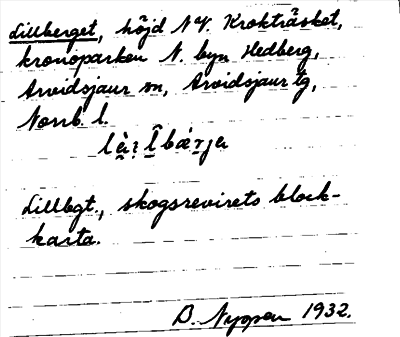 Lillberget, höjd N V. Krokträsket,
kronoparken N. byn Hedberg,
Arvidsjaur sn, Arvidsjaur tg,
Norrb. l.
Lillbgt., skogsrevirets block-
karta.
B. Nyppen 1932.